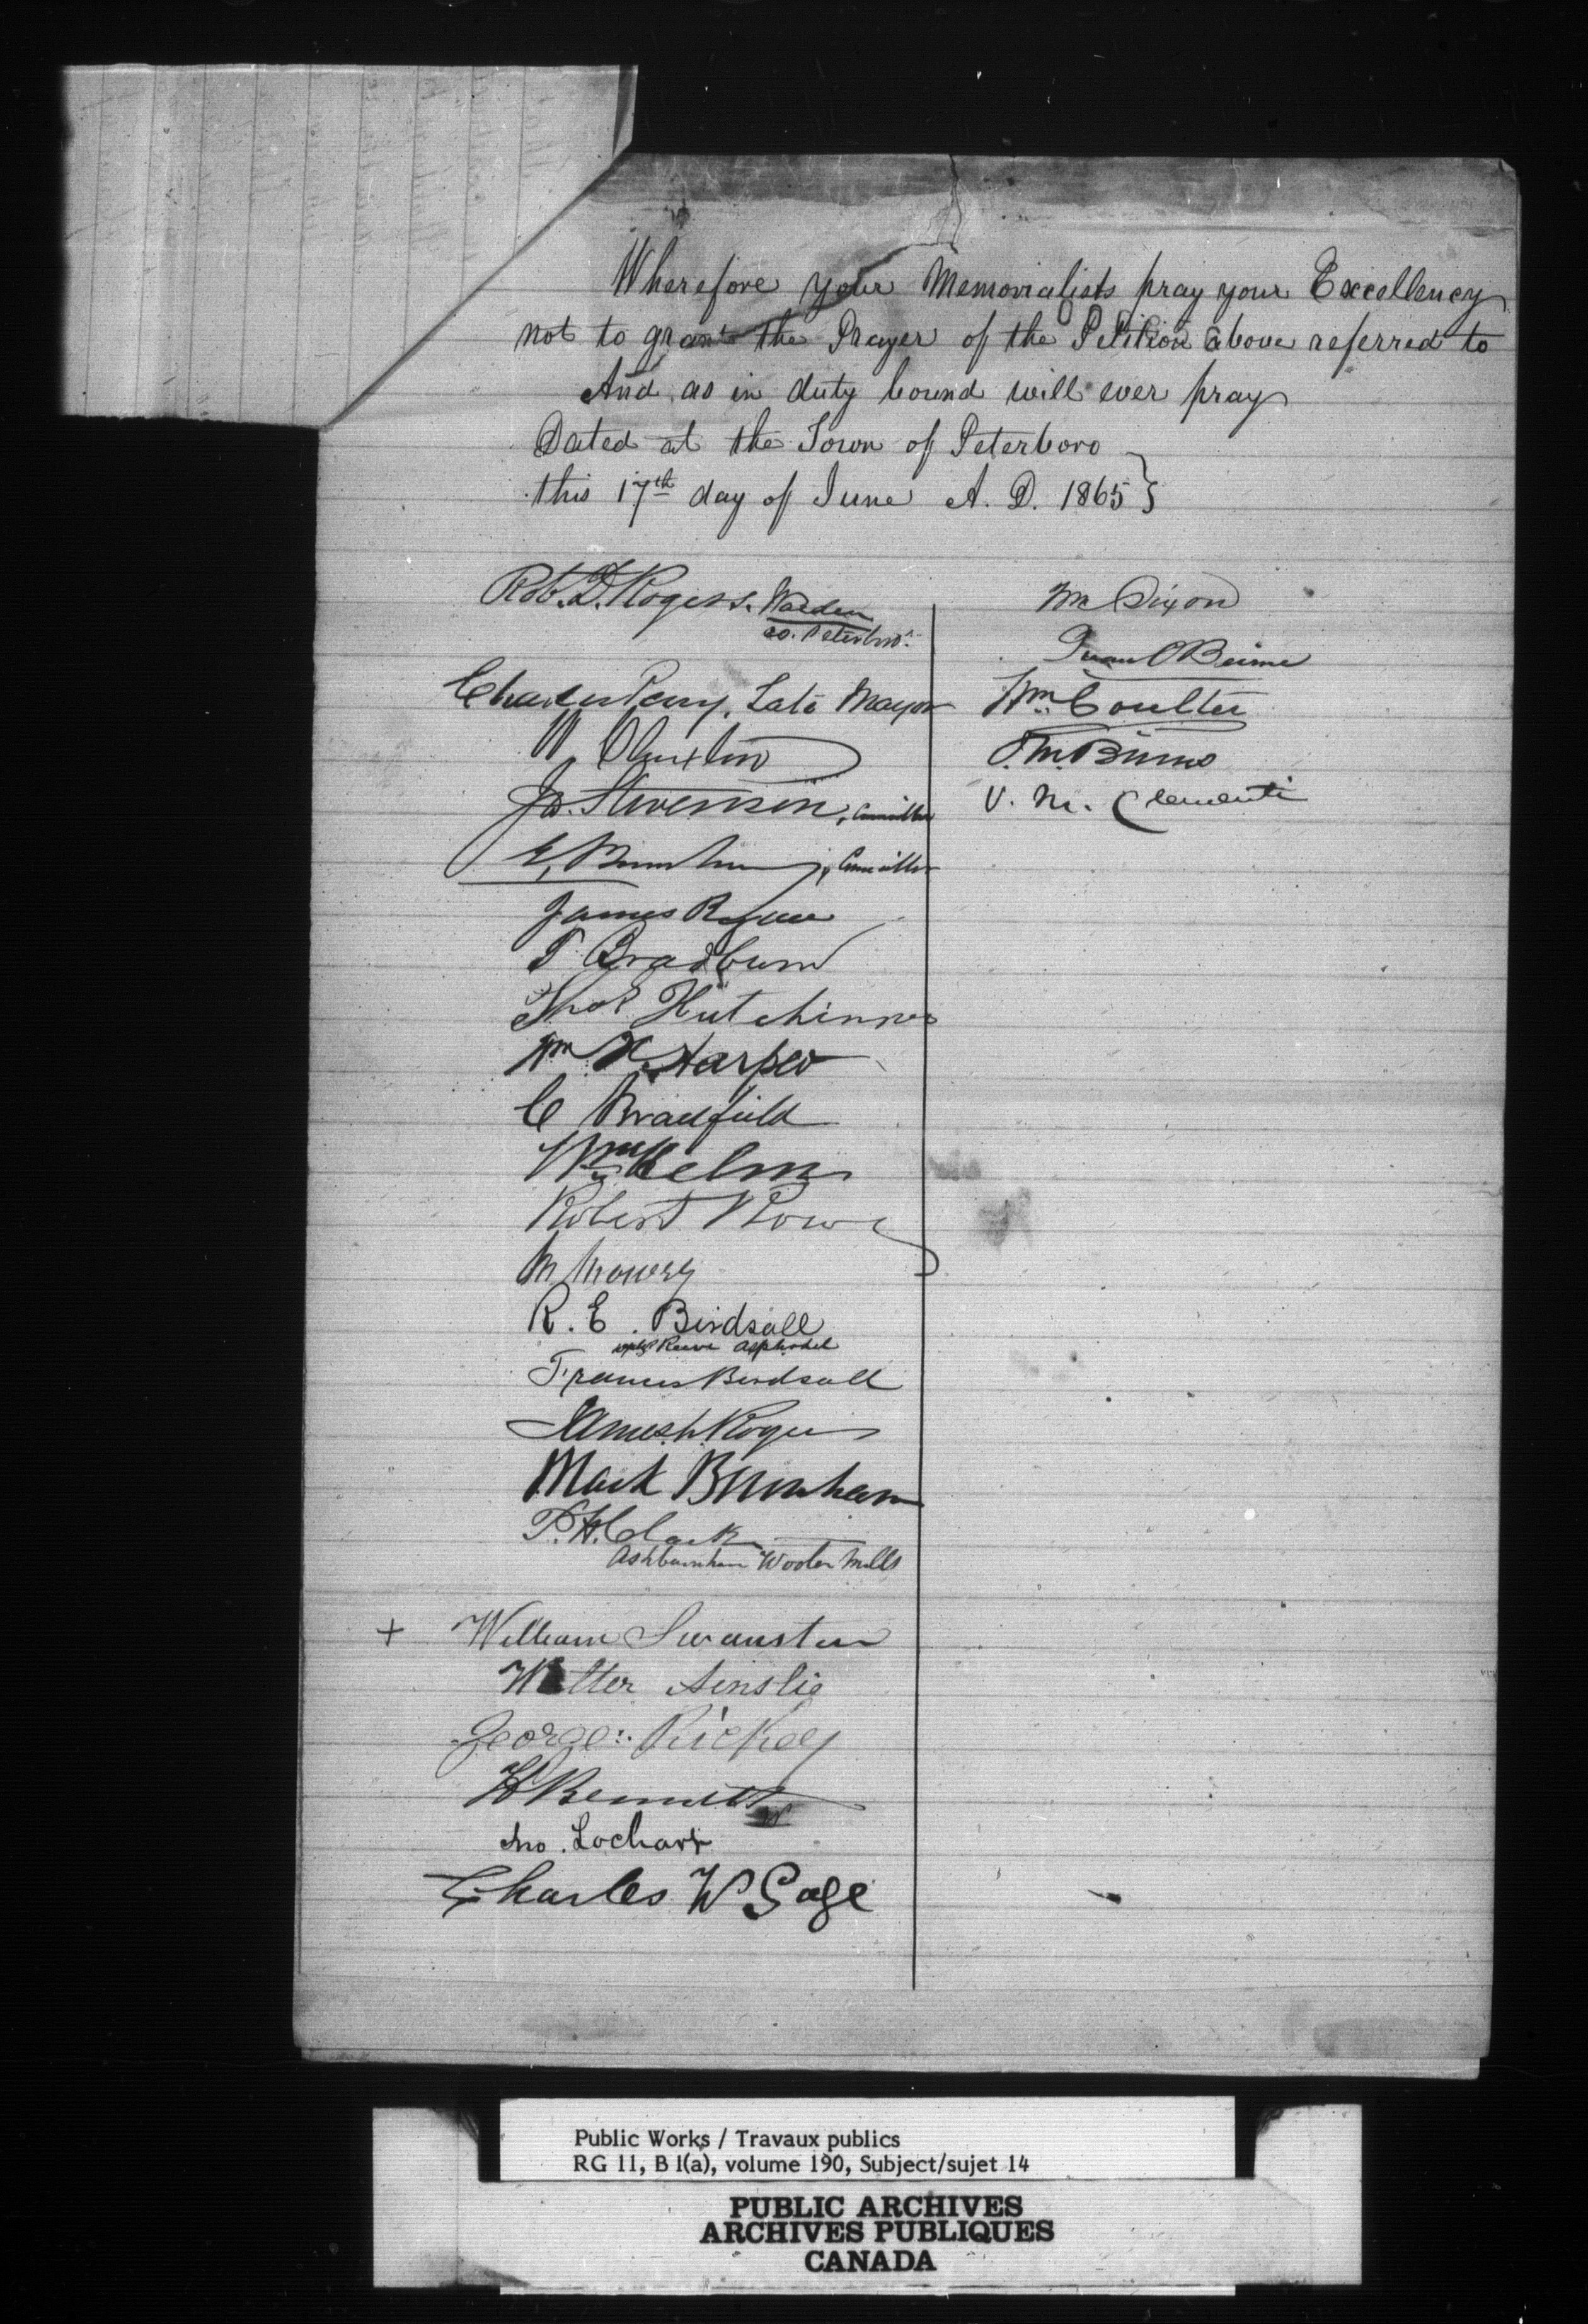 Wherefore your Memorialists pray your Excellency
not to grant the Prayer of the Petition above referred to
And as in duty bound will ever pray
Dated at the Town of Peterboro
this 17th day of June A. D. 1865
Rob. D. Rogers. Warden
Co. Peterboro'.
Charles Perry, Late Mayor
W Cluxton
Ja. Stevenson, Councillor
E, Burnham, Councillor
James
T Bradburn
Thos Hutchinson
Wm H. Harper
C Bradfield
Wm Helm
Robert Rowe
M Mowry
R. E. Birdsall
Reeve Asphodel
Francis Birdsall
James Rogers
Mark Burnham
P. H. Clark
Ashburnham Woolen Mills
+ William Swanston
Walter Ainslie
George: Rickey
H Bennett
Jno. Lochart
Charles W Gage
Wm Dixon
O'Beirne
Wm: Coulter
Binns
V. M. Clementi
Public Works / Travaux publics
RG 11, B 1(a), volume 190, Subject/sujet 14
PUBLIC ARCHIVES
ARCHIVES PUBLIQUES
CANADA